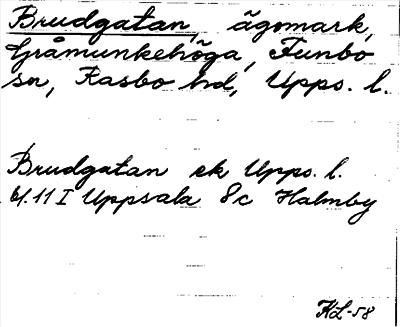 Brudgatan, ägomark,
Gråmunkehöga, Funbo
sn, Rasbo hd, Upps. l.
Brudgatan ek Upps. l.
bl. 11 I Uppsala 8c Halmby
KL-58